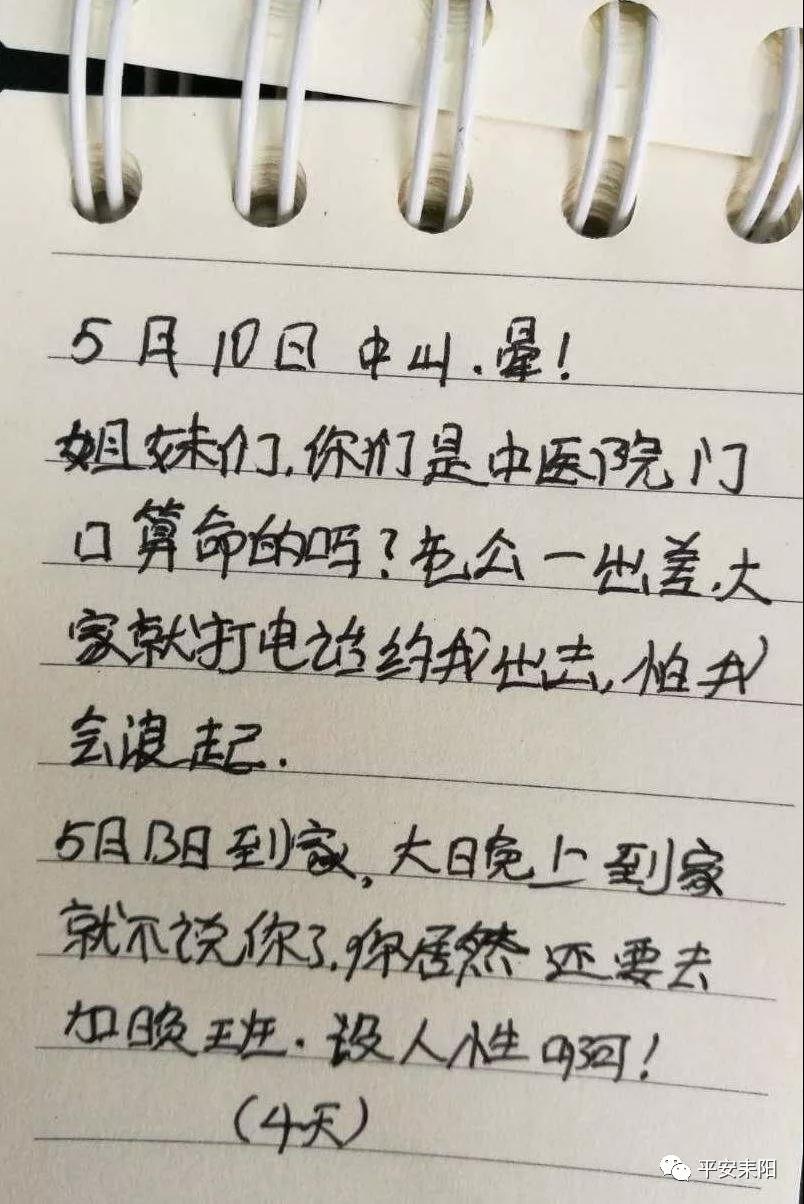 5月10日 中山.晕!
姐妹们,你们是中医院门
口算命的吗?老公一出差,大
家就打电话约我出去,怕我
会浪起.
5月13日到家,大晚上到家
就不说你了,你居然还要去
加晚班.没人性啊!
(4天)
平安耒阳